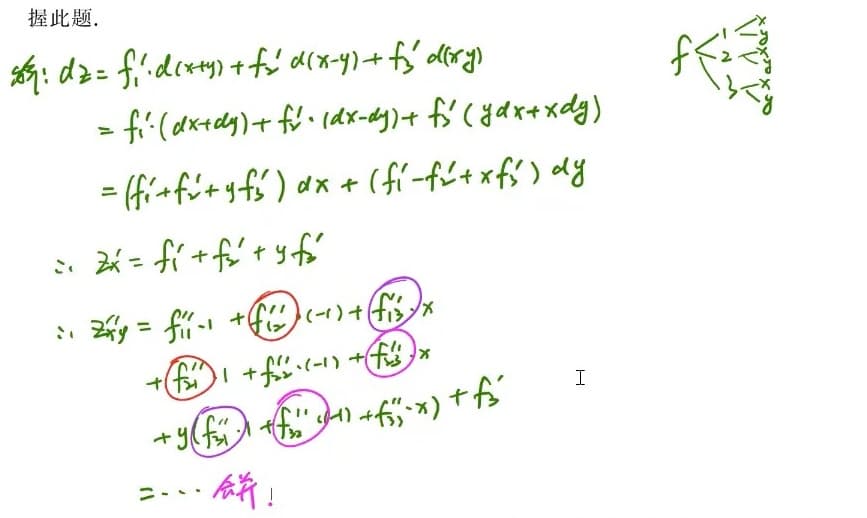 握此题.
解: dz = f₁′·d(x+y) + f₂′ d(x-y) + f₃′ d(xy)
= f₁′·(dx+dy) + f₂′·(dx-dy) + f₃′(ydx+xdy)
= (f₁′+f₂′+yf₃′) dx + (f₁′-f₂′+xf₃′) dy
∴ zx′ = f₁′ + f₂′ + y f₃′
∴ zxy″ = f₁₁″·1 + f₁₂″·(-1) + f₁₃″·x
+ f₂₁″·1 + f₂₂″·(-1) + f₂₃″·x
+ y(f₃₁″·1 + f₃₂″·(-1) + f₃₃″·x) + f₃′
= ··· 合并!
f
1 x y
2 x y
3 x y